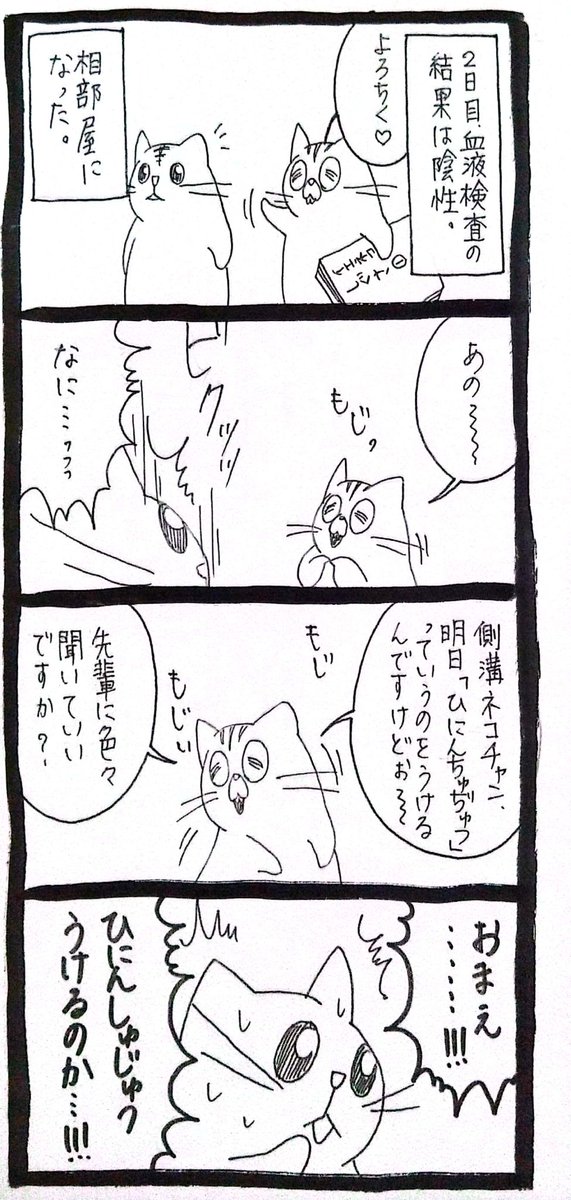 2日目、血液検査の
結果は陰性。
よろちく♡
相部屋に
なった。
あの〜〜〜
もじっ
グッッ
なに…ッッっ
側溝ネコチャン、
明日「ひにんちゅぢゅつ」
っていうのをうける
んですけどぉ〜〜
もじ
もじぃ
先輩に色々
聞いていい
ですか？
おまえ
………!!!
ひにんしゅじゅつ
うけるのか…!!!